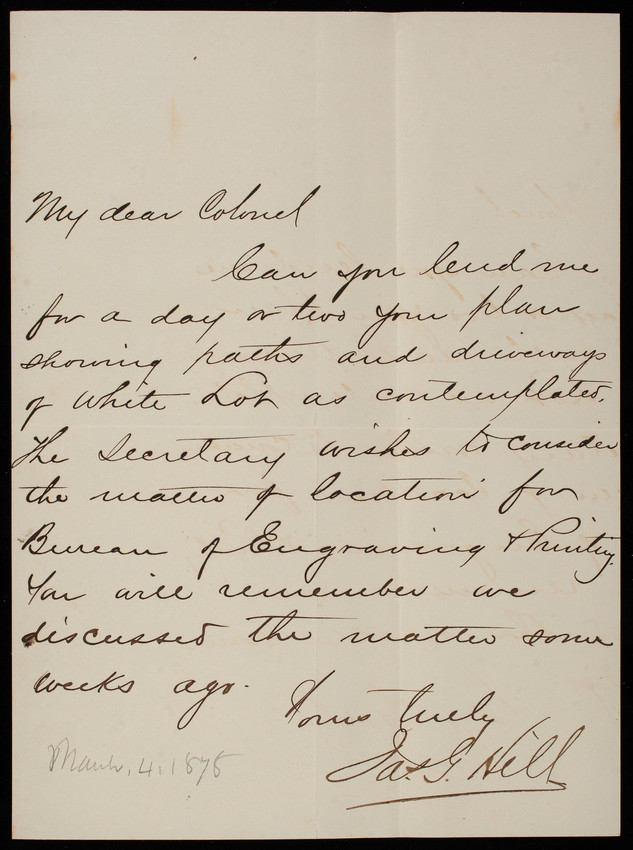 My dear Colonel
Can you lend me
for a day or two your plan
showing paths and driveways
of White Lot as contemplated.
The Secretary wishes to consider
the matter of location for
Bureau of Engraving & Printing.
You will remember we
discussed the matter some
weeks ago.
Yours truly
Jas. G. Hill
March. 4. 1878